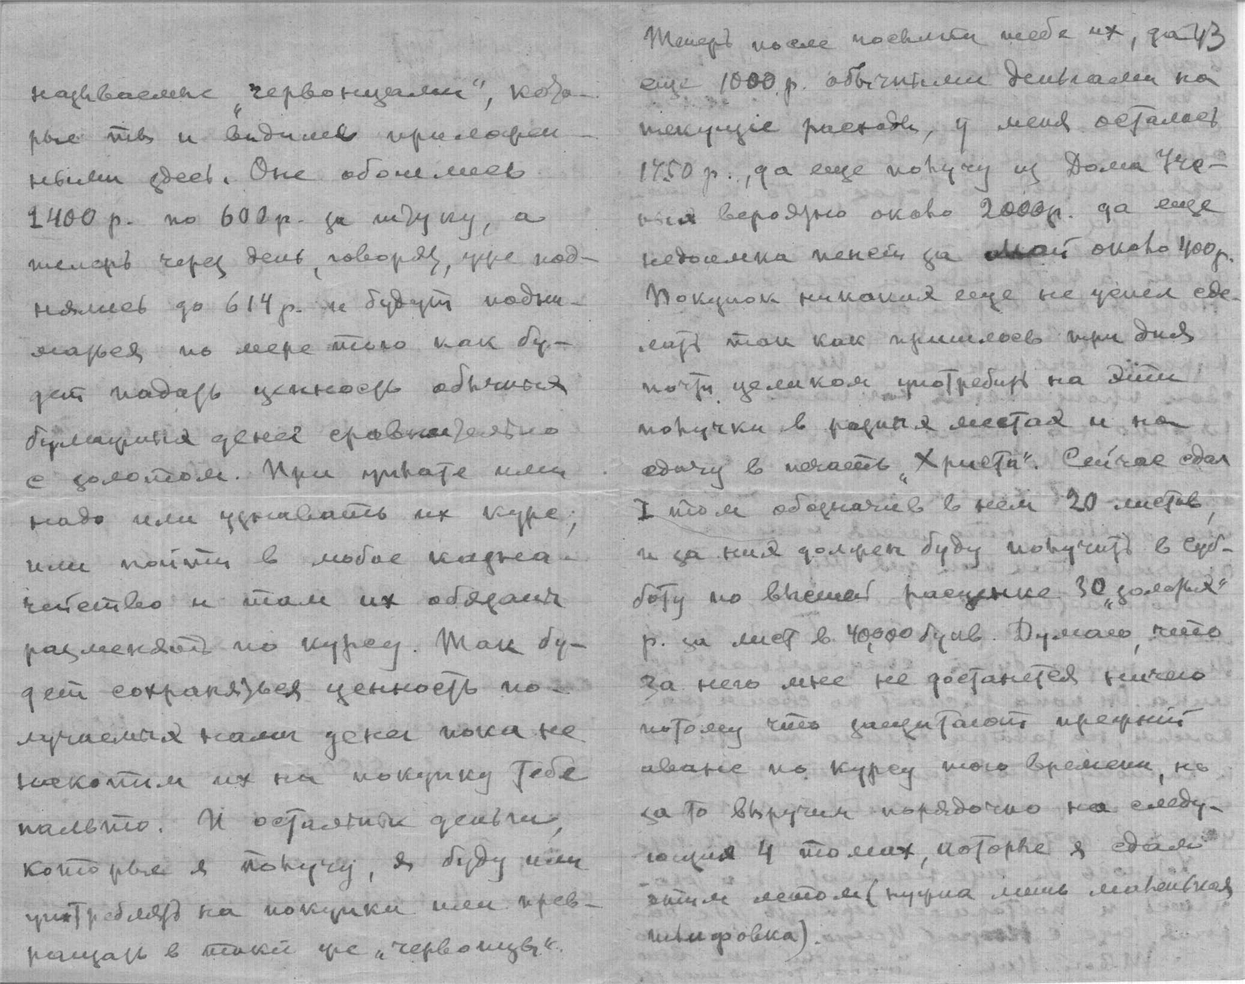 называемые „червонцами“, кото-
рые ты и видишь приложен-
ными здесь. Они обошлись
1400 р. по 600 р. за штуку, а
теперь через день, говорят, уже под-
нялись до 614 р. и будут подни-
маться по мере того как бу-
дет падать ценность обычных
бумажных денег сравнительно
с золотом. При трате ими
надо или узнавать их курс,
или пойти в любое казна-
чейство и там их обязаны
разменять по курсу. Так бу-
дет сохраняться ценность по-
лучаемых нами денег пока не
накопим их на покупку тебе
пальто. И остальные деньги,
которые я получу, я буду или
употреблять на покупки или прев-
ращать в такие же „червонцы“.
43
Теперь после посылки тебе их, да
еще 1000 р. обычными деньгами на
текущие расходы, у меня осталось
1450 р., да еще получу из Дома Уче-
ных вероятно около 2000 р. да еще
недоимка пенсии за май около 400 р.
Покупок никаких еще не успел сде-
лать так как пришлось три дня
почти целиком употребить на эти
получки в разных местах и на
сдачу в печать „Христа“. Сейчас сдал
I том обозначив в нем 20 листов,
и за них должен буду получить в суб-
боту по высшей расценке 30 „золотых“
р. за лист в 40,000 букв. Думаю, что
за него мне не достанется ничего
потому что засчитают прежний
аванс по курсу того времени, но
за то выручим порядочно на следу-
ющих 4 томах, которые я сдам
этим летом (нужна лишь маленькая
шлифовка).